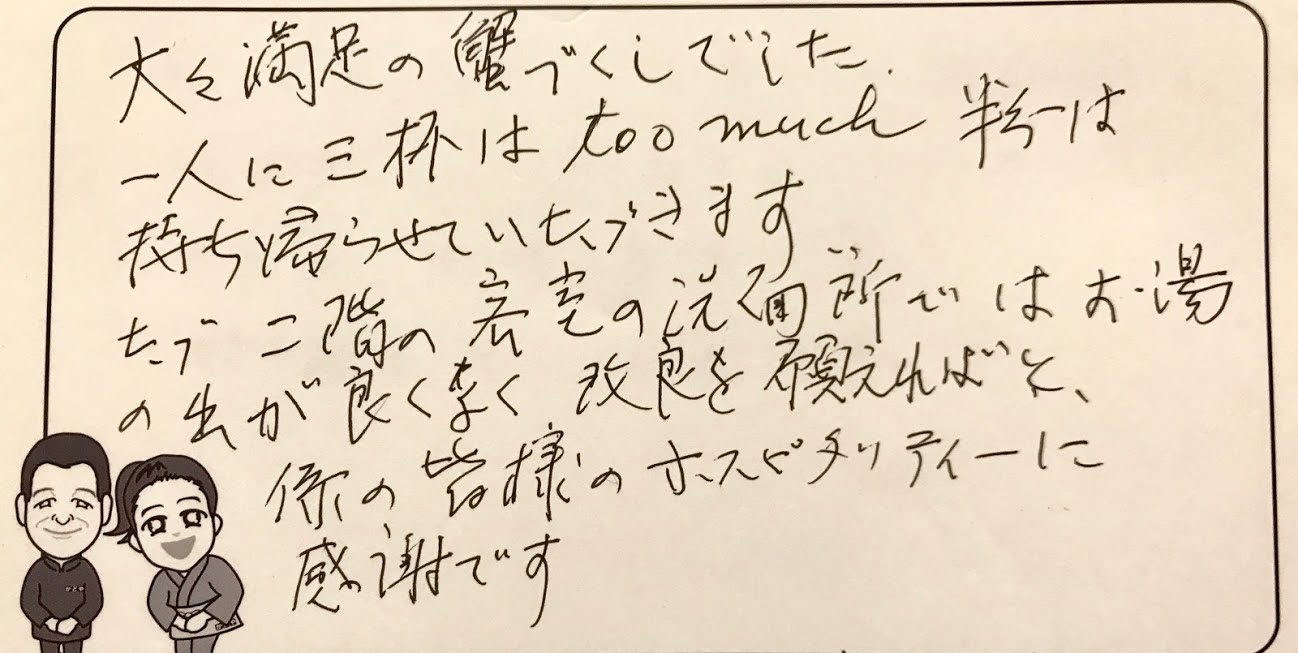 大々満足の蟹づくしでした.
一人に三杯は too much 半分は
持ち帰らせていただきます
ただ 二階の客室の洗面所ではお湯
の出が良くなく 改良を願えればと、
係の皆様のホスピタリティーに
感謝です